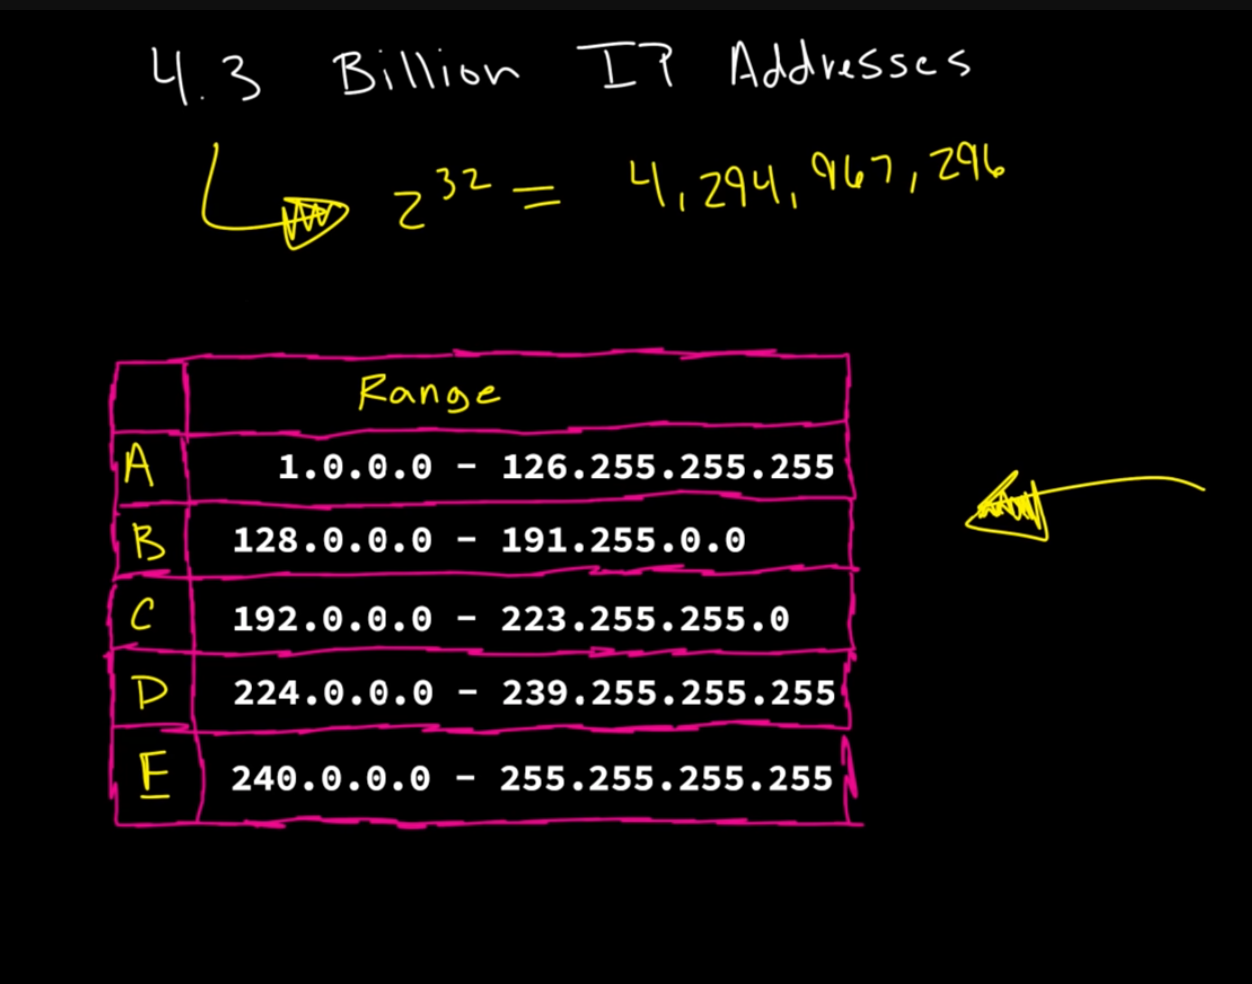 4.3 Billion IP Addresses
2^32 = 4,294,967,296
Range
A 1.0.0.0 - 126.255.255.255
B 128.0.0.0 - 191.255.0.0
C 192.0.0.0 - 223.255.255.0
D 224.0.0.0 - 239.255.255.255
E 240.0.0.0 - 255.255.255.255